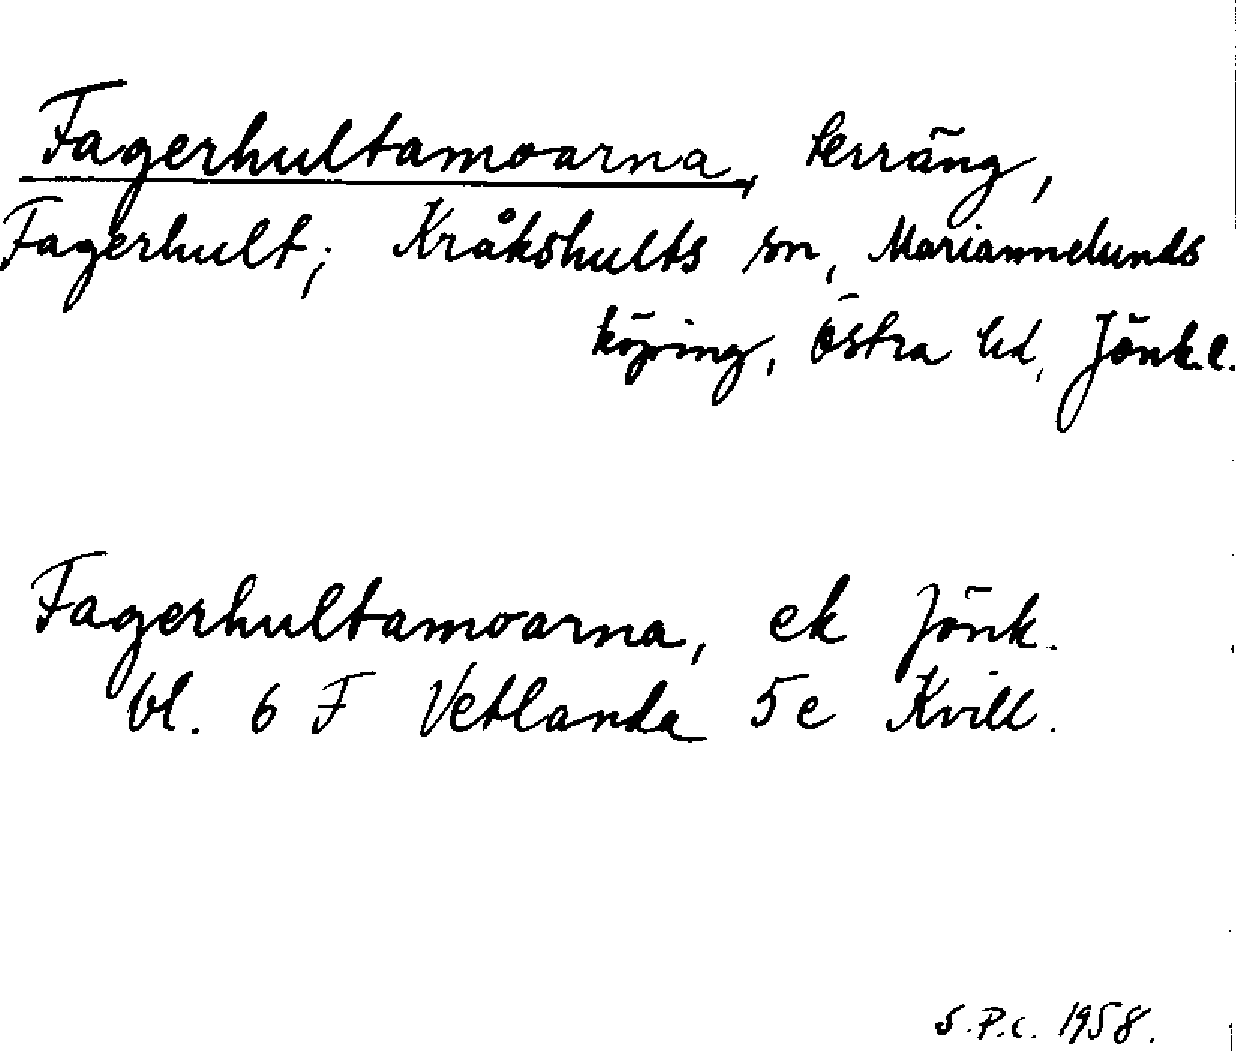 Fagerhultamoarna, terräng,
Fagerhult; Kråkshults sn, Mariannelunds
köping, Östra hd, Jönk.l.
Fagerhultamoarna, ek Jönk.
bl. 6 F Vetlanda 5e Kvill.
S.P.C. 1958.